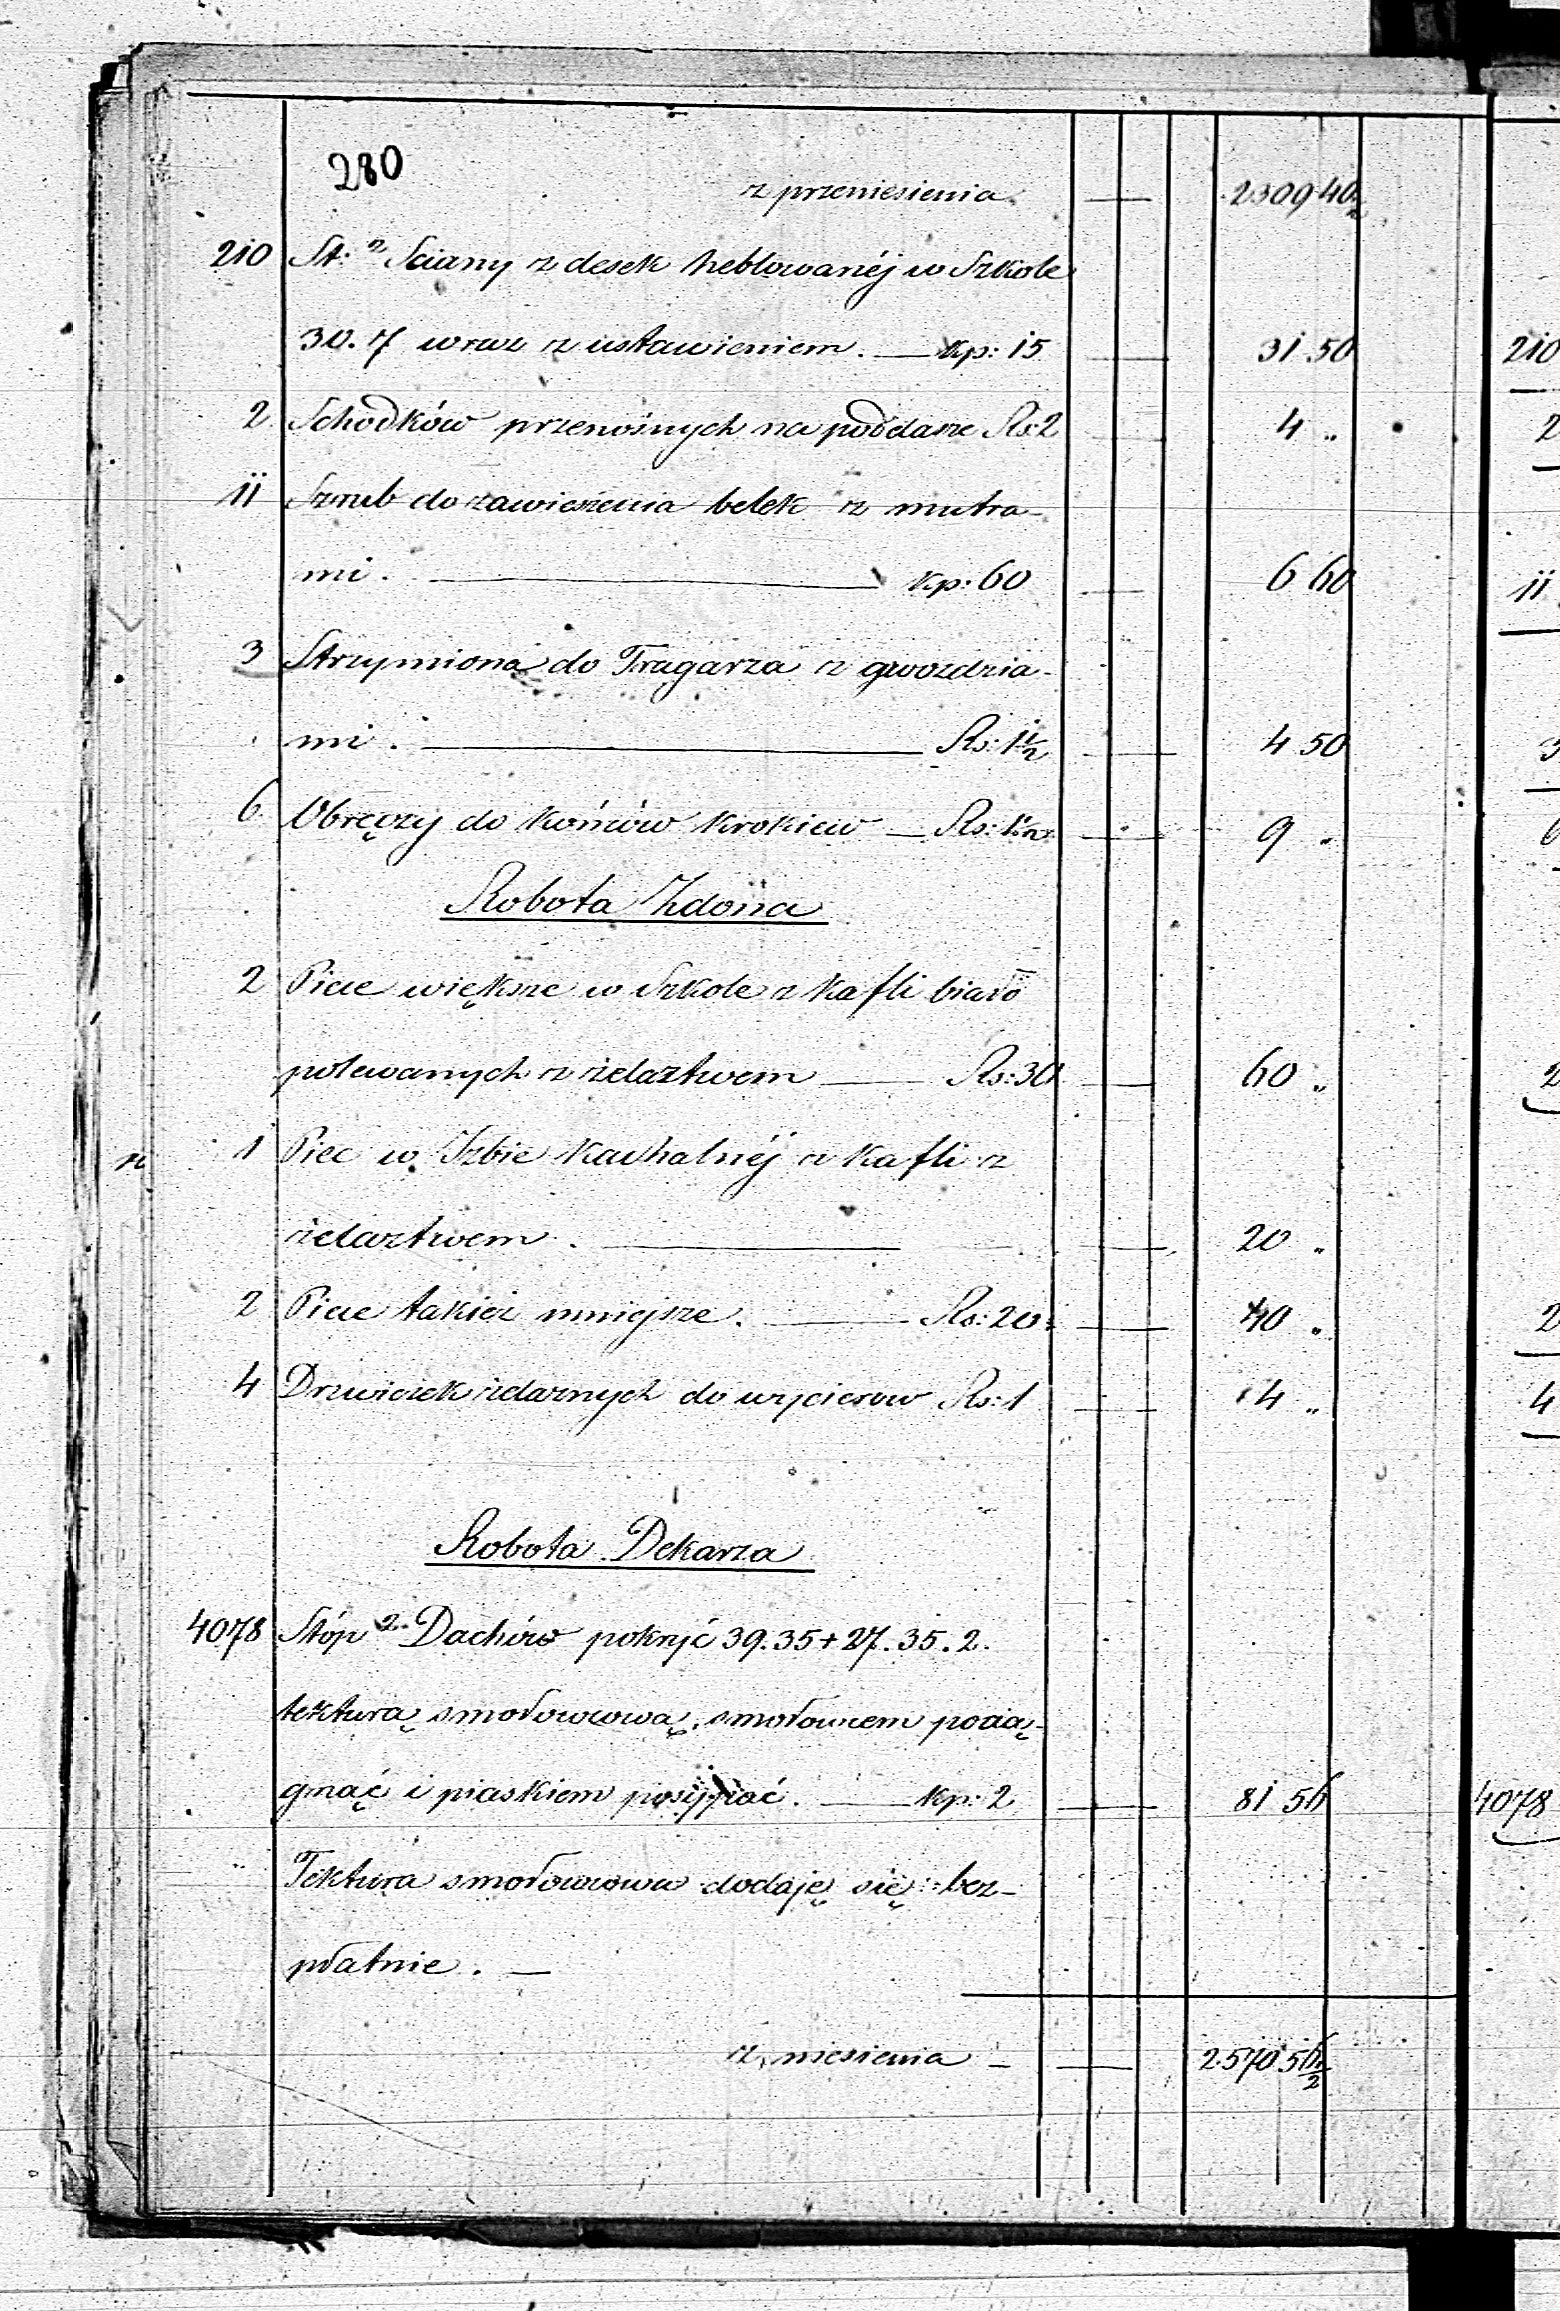 280
z przeniesienia. — 2309 40 1/2
210 St: 2 Sciany z desek heblowanéj w Szkole
30. 7 wraz z ustawieniem. — kp: 15 — 31 50
2 Schodków przenośnych na poddasze Rs: 2 — 4 „
11 Szrub do zawieszenia belek z mutra-
mi. — kp: 60 — 6 60
3 Strzymiona do Tragarza z gwozdzia-
mi. — Rs: 1 1/2 — 4 50
6 Obręczy do końców krokiew — Rs: 1 1/2 — 9 „
Robota Zdóna
2 Piece większe w Szkole z kafli biało
polewanych z żelaztwem — Rs: 30 — 60 „
1 Piec w Izbie Kachalnéj z kafli z
żelaztwem. — 20 „
2 Piece takież mniejsze. — Rs: 20 — 40 „
4 Drzwiczek żelaznych do wycierow Rs: 1 — 4 „
Robota Dekarza
4078 Stóp 2 Dachów pokryć 39. 35 + 27. 35. 2.
tekturą smołowcową, smołowcem pocią-
gnąć i piaskiem posypać. — kp: 2 — 81 56
Tektura smołowcowa dodaję się bez-
płatnie. —
z niesienia — 2570 56 1/2
210
2
11
3
6
2
2
4
4078